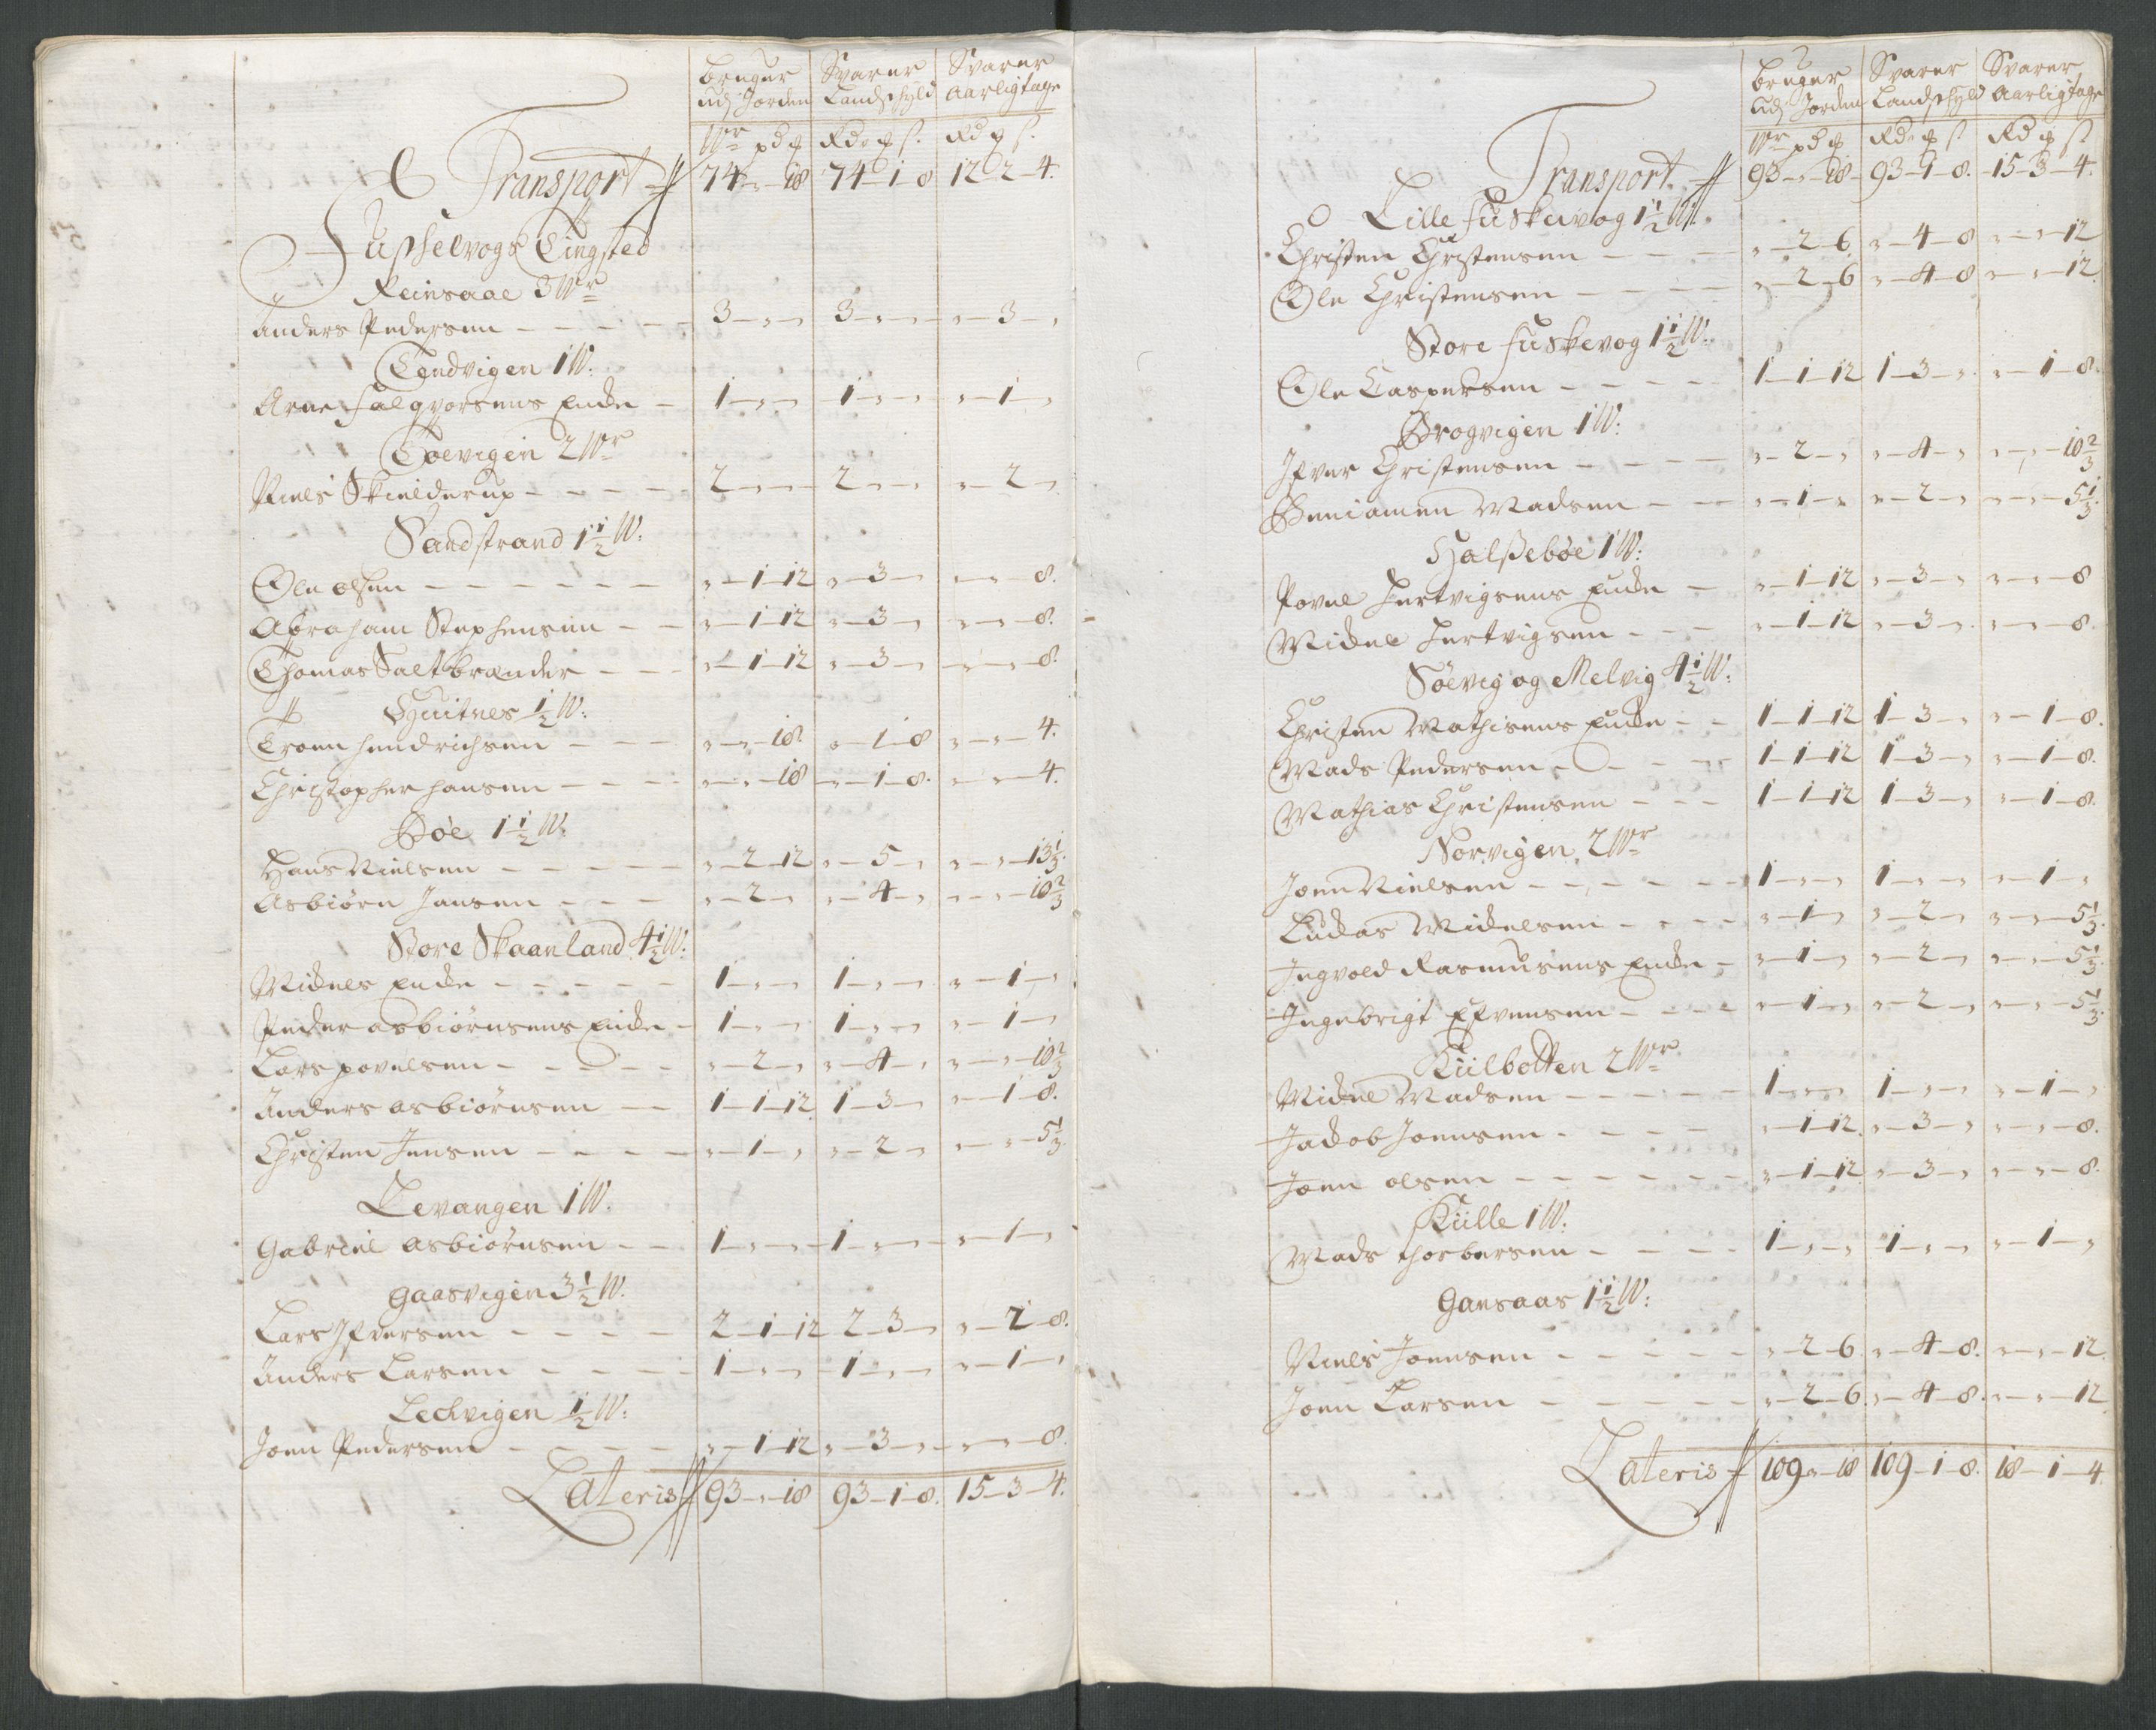 bruger Svarer Svarer
udj Jorden Landschyld Aarligtage
Wr pd ℔ Rdr ℔ s. Rd ℔ s.
Transport 74-„-18 74-1-8 12-2-4.
Fuschelvogs Tingsted
Reinsaae 3 Wr
Anders Pedersen - - - - 3-„-„ 3-„-„ „-3-„
Tendvigen 1 W:
Arne Falqvorsens Encke - 1-„-„ 1-„-„ „-1-„
Toevigen 2 Wr
Niels Skielderup - - - - 2-„-„ 2-„-„ „-2-„
Sandstrand 1½ W:
Ole olsen - - - - - - „-1-12 „-3-„ „-„-8.
Abraham Stephensen - - „-1-12 „-3-„ „-„-8.
Thomas Saltbrænder - - „-1-12 „-3-„ „-„-8.
Huitnes ½ W:
Troen hendrichsen - - - „-„-18. „-1-8 „-„-4.
Christopher hansen - - - „-„-18 „-1-8. „-„-4.
Böe 1½ W:
Hans Nielsen - - - - - „-2-12 „-5-„ „-„-13⅓.
Asbiørn Jansen - - - „-2-„ „-4-„ „-„-10⅔
Store Skaanland 4½ W:
Michels Encke - - - - - 1-„-„ 1-„-„ „-1-„
Peder asbiørnsens Encke - 1-„-„ 1-„-„ „-1-„
Lars povelsen - - - - - „-2-„ „-4-„ „-„-10⅔
Anders asbiørnsen - - 1-1-12. 1-3-„ „-1-8.
Christen Jensen - - - - „-1-„ „-2-„ „-„-5⅓
Levangen 1 W.
Gabriel asbiørnsen - - 1-„-„ 1-„-„ „-1-„
Gaasvigen 3½ W.
Lars Ifversen - - - - 2-1-12 2-3-„ „-2-8.
Anders Larsen - - - - 1-„-„ 1-„-„ „-1-„
Lechvigen ½ W:
Joen Pedersen - - - - „-1-12 „-3-„ „-„-8.
Lateris 93-„-18 93-1-8. 15-3-4.
bruger Svarer Svarer
udj Jorden Landschyld Aarligtage
Wr pd ℔ Rdr ℔ s Rd ℔ s
Transport. 93-„-18 93-1-8. 15-3-4.
Lille fuskevog 1½ W.
Christen Christensen - - - „-2-6. „-4-8 „-„-12
Ole Christensen - - - - „-2-6 „-4-8 „-„-12.
Store fuskevog 1½ W.
Ole Caspersen - - - - 1-1-12 1-3-„ „-1-8.
Brogvigen 1 W:
Ifver Christensen - - - - „-2-„ „-4-„ „-„-10⅔
Beniamen Madsen - - „-1-„ „-2-„ „-„-5⅓.
Halssebøe 1 W:
Povel Hertvigsens Encke - „-1-12 „-3-„ „-„-8
Michel Hertvigsen - - - „-1-12 „-3-„ „-„-8.
Söevig og Melvig 4½ W:
Christen Mathisens Encke - - 1-1-12 1-3-„ „-1-8.
Mads Pedersen - - - - 1-1-12 1-3-„ „-1-8.
Mathias Christensen - - - 1-1-12 1-3-„ „-1-8.
Norvigen 2 Wr
Joen Nielsen - - - - - 1-„-„ 1-„-„ „-1-„
Lucas Michelsen - - - - „-1-„ „-2-„ „-„-5⅓.
Ingvold Rasmusens Encke - „-1-„ „-2-„ „-„-5⅓.
Ingebrigt Efvensen - - - - „-1-„ „-2-„ „-„-5⅓.
Kiilbotten 2 Wr
Michel Madsen - - - - - 1-„-„ 1-„-„ „-1-„
Jacob Joensen - - - - „-1-12. „-3-„ „-„-8.
Joen olsen - - - - - - „-1-12. „-3-„ „-„-8.
Kiille 1 W:
Mads thorbersen - - - - 1-„-„ 1-„-„ „-1-„
Gansaas 1½ W:
Niels Joensen - - - - - „-2-6. „-4-8. „-„-12.
Joen Larsen - - - - - „-2-6. „-4-8. „-„-12
Lateris 109-„-18 109-1-8. 18-1-4.